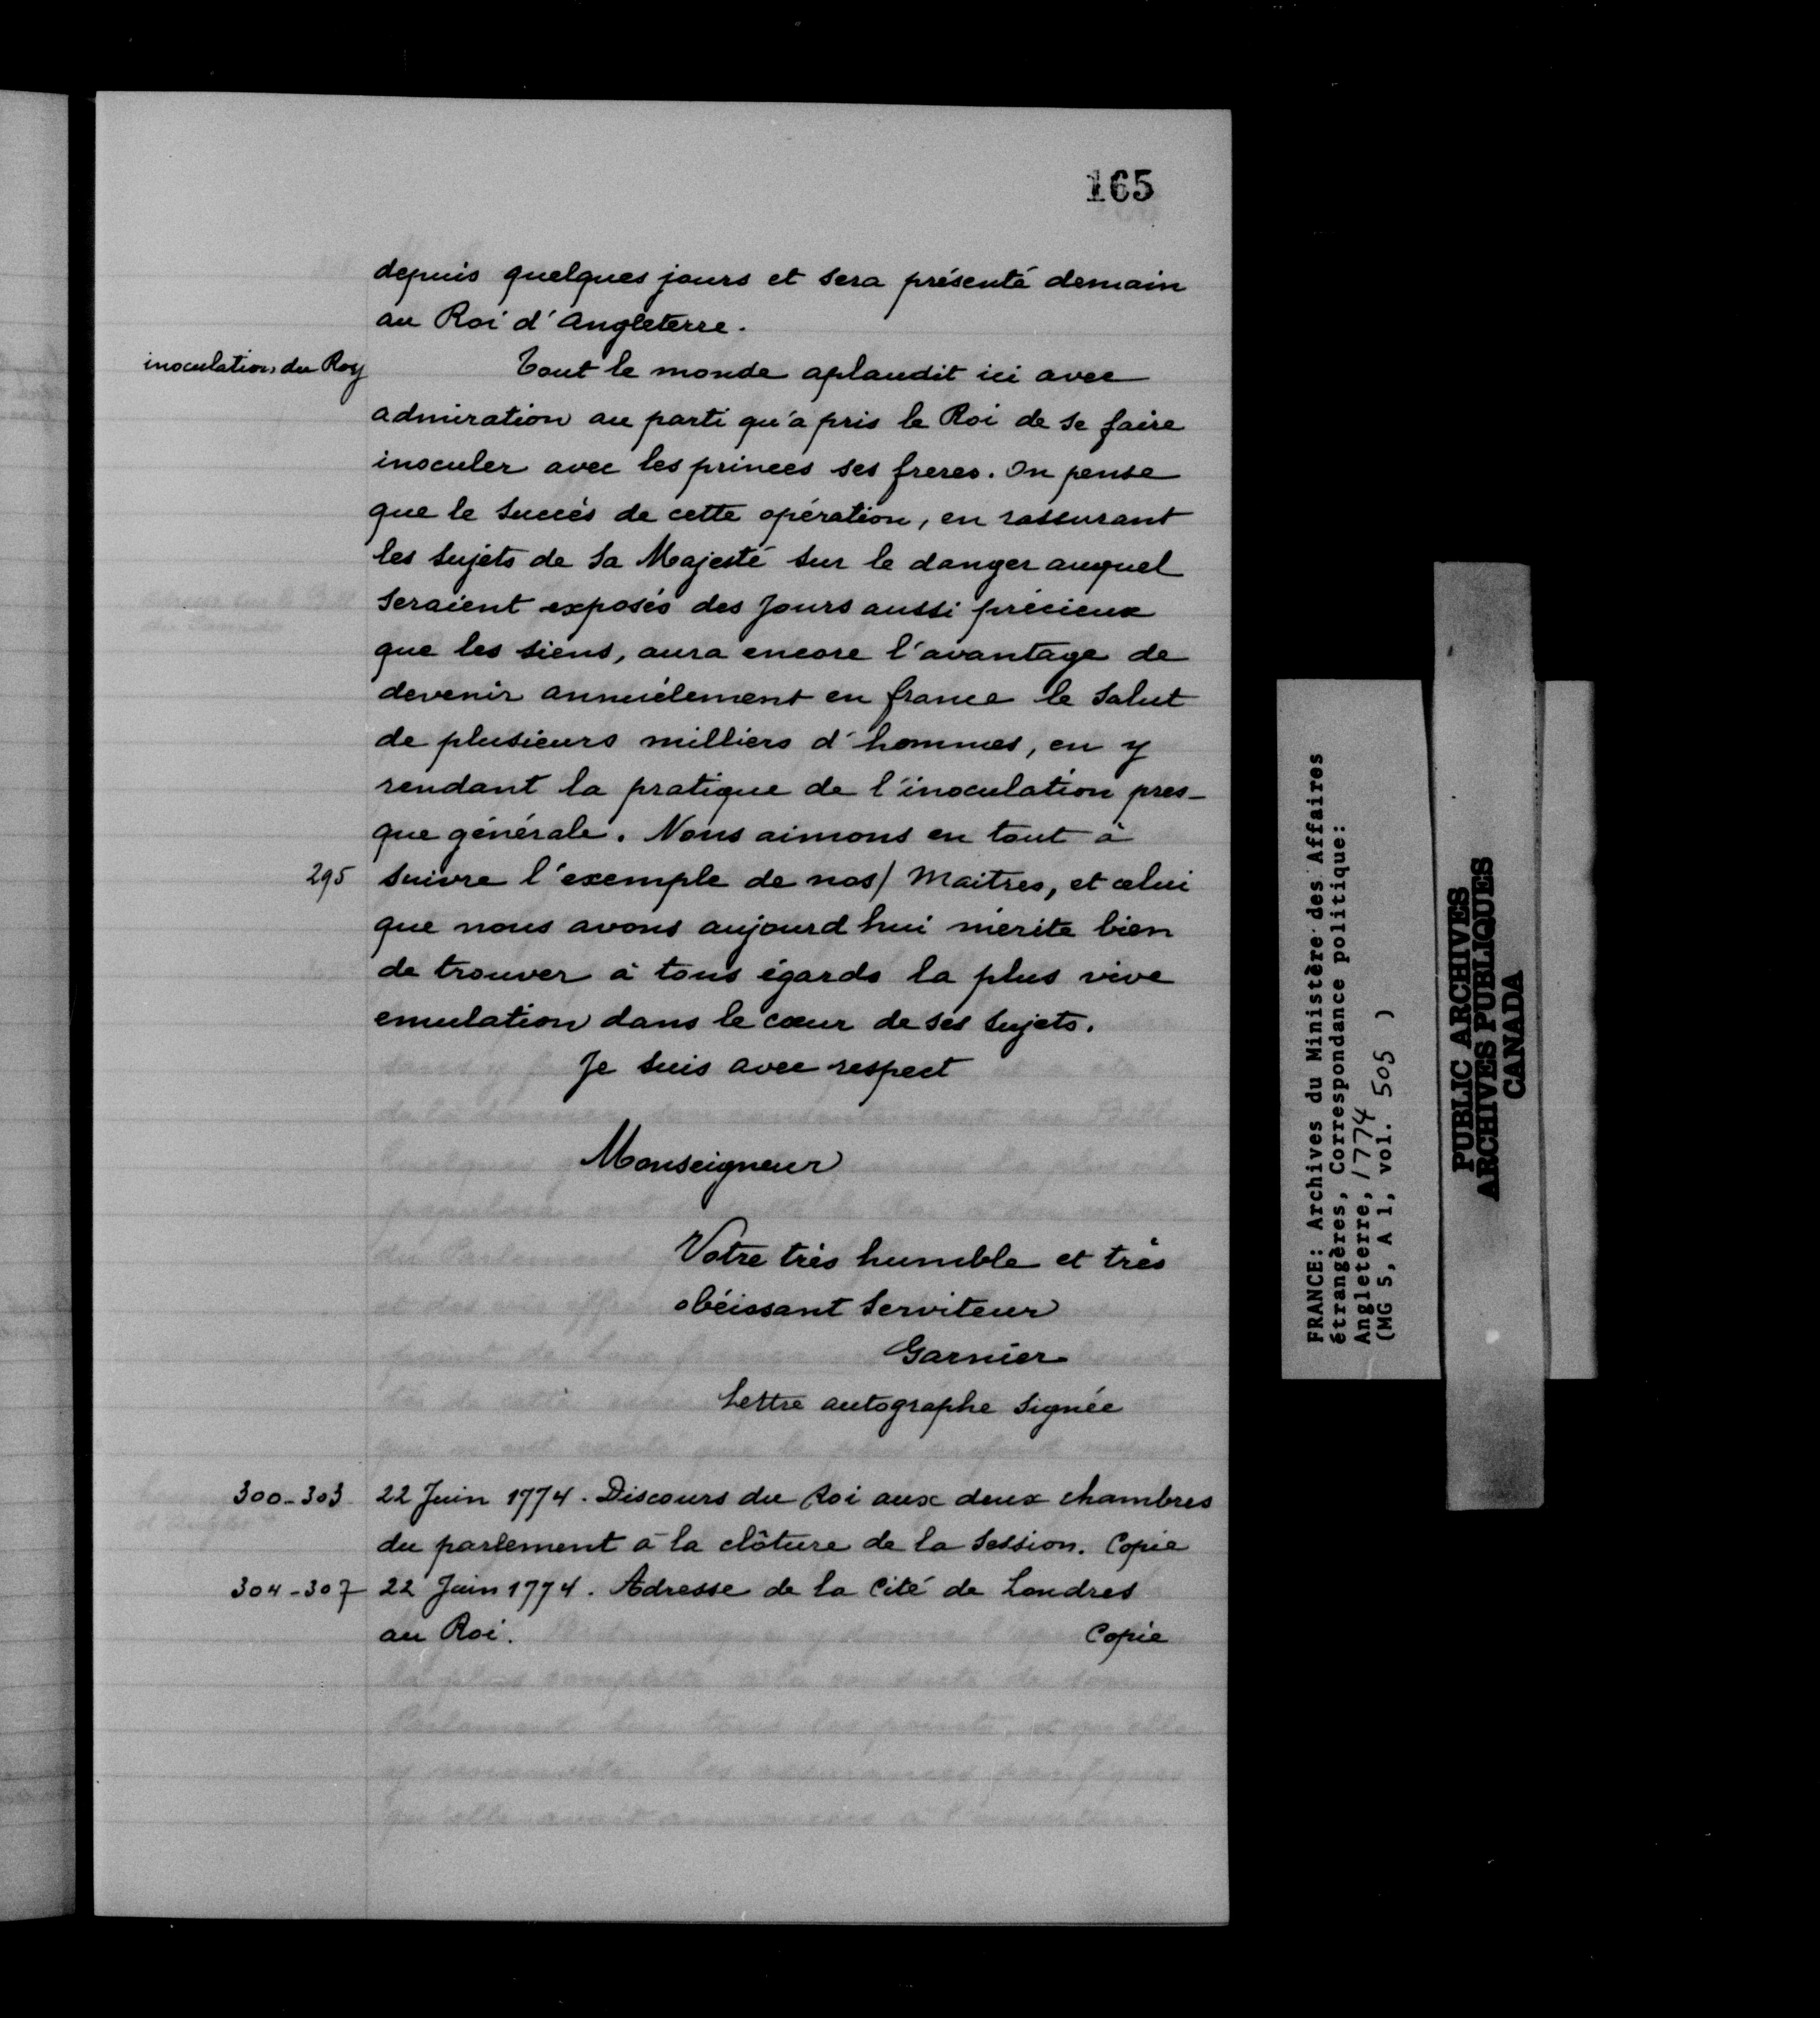 165
depuis quelques jours et sera présenté demain
au Roi d'Angleterre.
inoculation du Roy
Tout le monde aplaudit ici avec
admiration au parti qu'a pris le Roi de se faire
inoculer avec les princes ses freres. On pense
que le succès de cette opération, en rassurant
les sujets de sa Majesté sur le danger auquel
seraient exposés des jours aussi précieux
que les siens, aura encore l'avantage de
devenir annuélement en france le salut
de plusieurs milliers d'hommes, en y
rendant la pratique de l'inoculation pres-
que générale. Nous aimons en tout à
295 suivre l'exemple de nos/ Maitres, et celui
que nous avons aujourd'hui mérite bien
de trouver à tous égards la plus vive
emulation dans le cœur de ses sujets.
Je suis avec respect
Monseigneur
Votre très humble et très
obéissant serviteur
Garnier
Lettre autographe signée
300-303 22 Juin 1774. Discours du Roi aux deux chambres
du parlement à la clôture de la session. Copie
304-307 22 Juin 1774. Adresse de la Cité de Londres
au Roi. Copie
FRANCE: Archives du Ministère des Affaires
étrangères, Correspondance politique:
Angleterre, 1774
(MG 5, A 1, vol. 505 )
PUBLIC ARCHIVES
ARCHIVES PUBLIQUES
CANADA